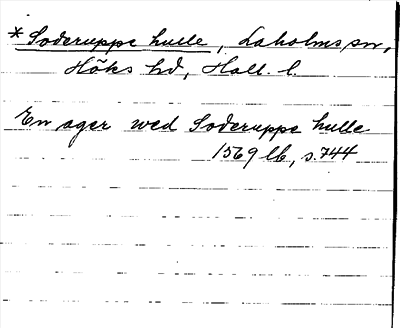 *Soderuppe hulle, Laholms sn,
Höks hd, Hall. l.
En ager wed Soderuppe hulle
1569 lb, s. 744